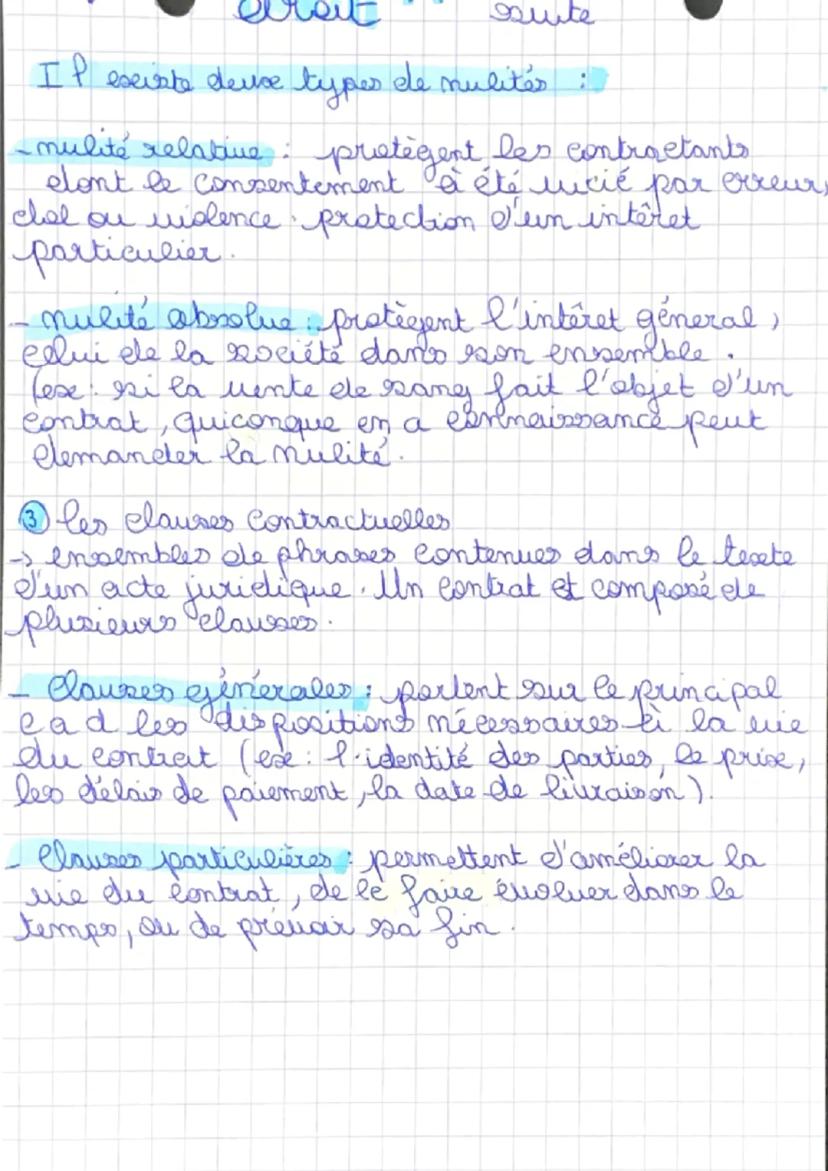 droit suite
Il existe deux types de nulités :
- nulité relative : protègent les contractants
dont le consentement à été vicié par erreur,
dol ou violence. protection d'un intêret
particulier.
- nulité absolue : protègent l'intêret géneral,
celui de la société dans son ensemble.
(ex : si la vente de sang fait l'objet d'un
contrat, quiconque en a connaissance peut
demander la nulité.
③ les clauses contractuelles
-> ensembles de phrases contenues dans le texte
d'un acte juridique. Un contrat et composé de
plusieurs clauses.
- Clauses génerales : portent sur le principal
c a d les dispositions nécessaires à la vie
du contrat (ex : l'identité des parties, le prix,
les délais de paiement, la date de livraison).
- Clauses particulières : permettent d'améliorer la
vie du contrat, de le faire évoluer dans le
temps, ou de prévoir sa fin.